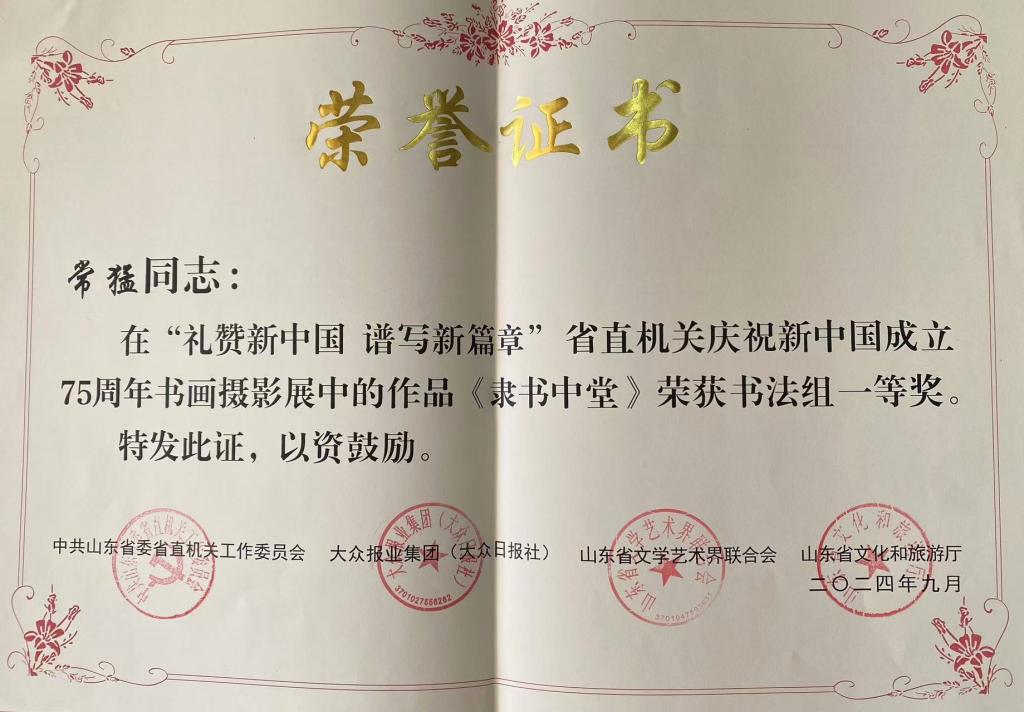 荣誉证书
常猛同志：
在“礼赞新中国 谱写新篇章”省直机关庆祝新中国成立
75周年书画摄影展中的作品《隶书中堂》荣获书法组一等奖。
特发此证，以资鼓励。
中共山东省委省直机关工作委员会 大众报业集团（大众日报社） 山东省文学艺术界联合会 山东省文化和旅游厅
二〇二四年九月
中共山东省委省直机关工作委员会
大众报业集团（大众日报社）
3701027656262
山东省文学艺术界联合会
山东省文化和旅游厅